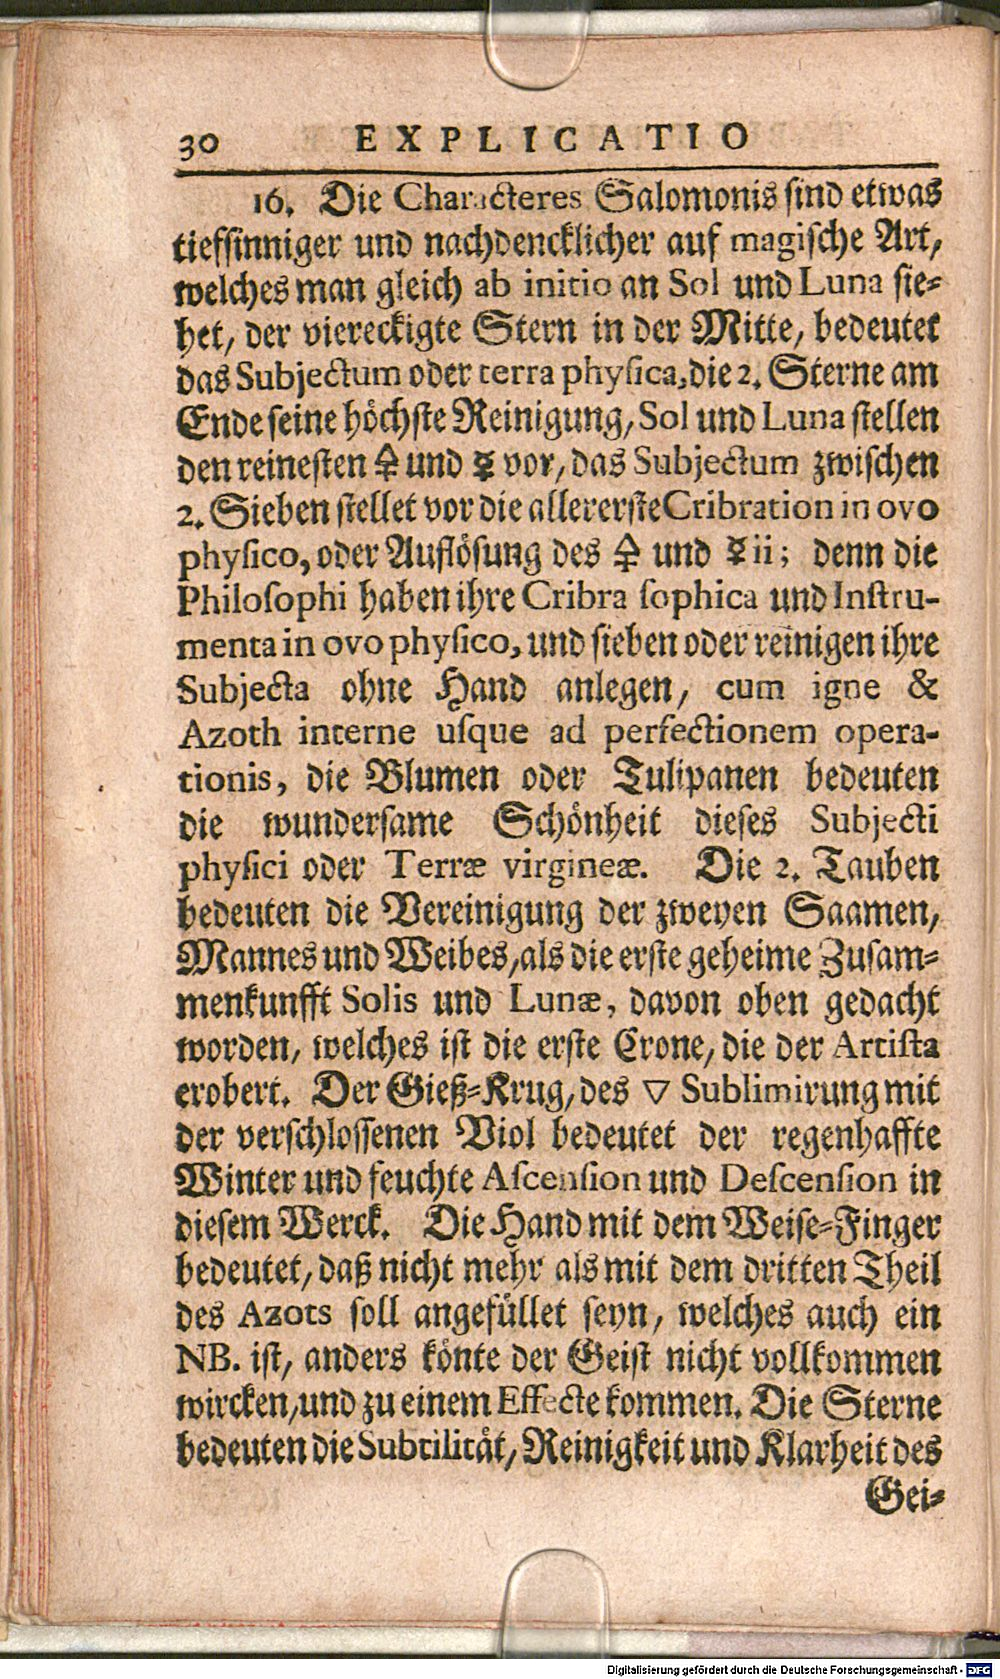 30 EXPLICATIO
16. Die Characteres Salomonis sind etwas
tieffsinniger und nachdencklicher auf magische Art,
welches man gleich ab initio an Sol und Luna sie-
het, der viereckigte Stern in der Mitte, bedeutet
das Subjectum oder terra physica, die 2. Sterne am
Ende seine höchste Reinigung, Sol und Luna stellen
den reinesten 🜍 und ☿ vor, das Subjectum zwischen
2. Sieben stellet vor die allererste Cribration in ovo
physico, oder Auflösung des 🜍 und ☿ii; denn die
Philosophi haben ihre Cribra sophica und Instru-
menta in ovo physico, und sieben oder reinigen ihre
Subjecta ohne Hand anlegen, cum igne &
Azoth interne usque ad perfectionem opera-
tionis, die Blumen oder Tulipanen bedeuten
die wundersame Schönheit dieses Subjecti
physici oder Terræ virgineæ. Die 2. Tauben
bedeuten die Vereinigung der zweyen Saamen,
Mannes und Weibes, als die erste geheime Zusam-
menkunfft Solis und Lunæ, davon oben gedacht
worden, welches ist die erste Crone, die der Artista
erobert. Der Gieß-Krug, des ▽ Sublimirung mit
der verschlossenen Viol bedeutet der regenhaffte
Winter und feuchte Ascension und Descension in
diesem Werck. Die Hand mit dem Weise-Finger
bedeutet, daß nicht mehr als mit dem dritten Theil
des Azots soll angefüllet seyn, welches auch ein
NB. ist, anders könte der Geist nicht vollkommen
wircken, und zu einem Effecte kommen. Die Sterne
bedeuten die Subtilität, Reinigkeit und Klarheit des
Gei-
Digitalisierung gefördert durch die Deutsche Forschungsgemeinschaft - DFG